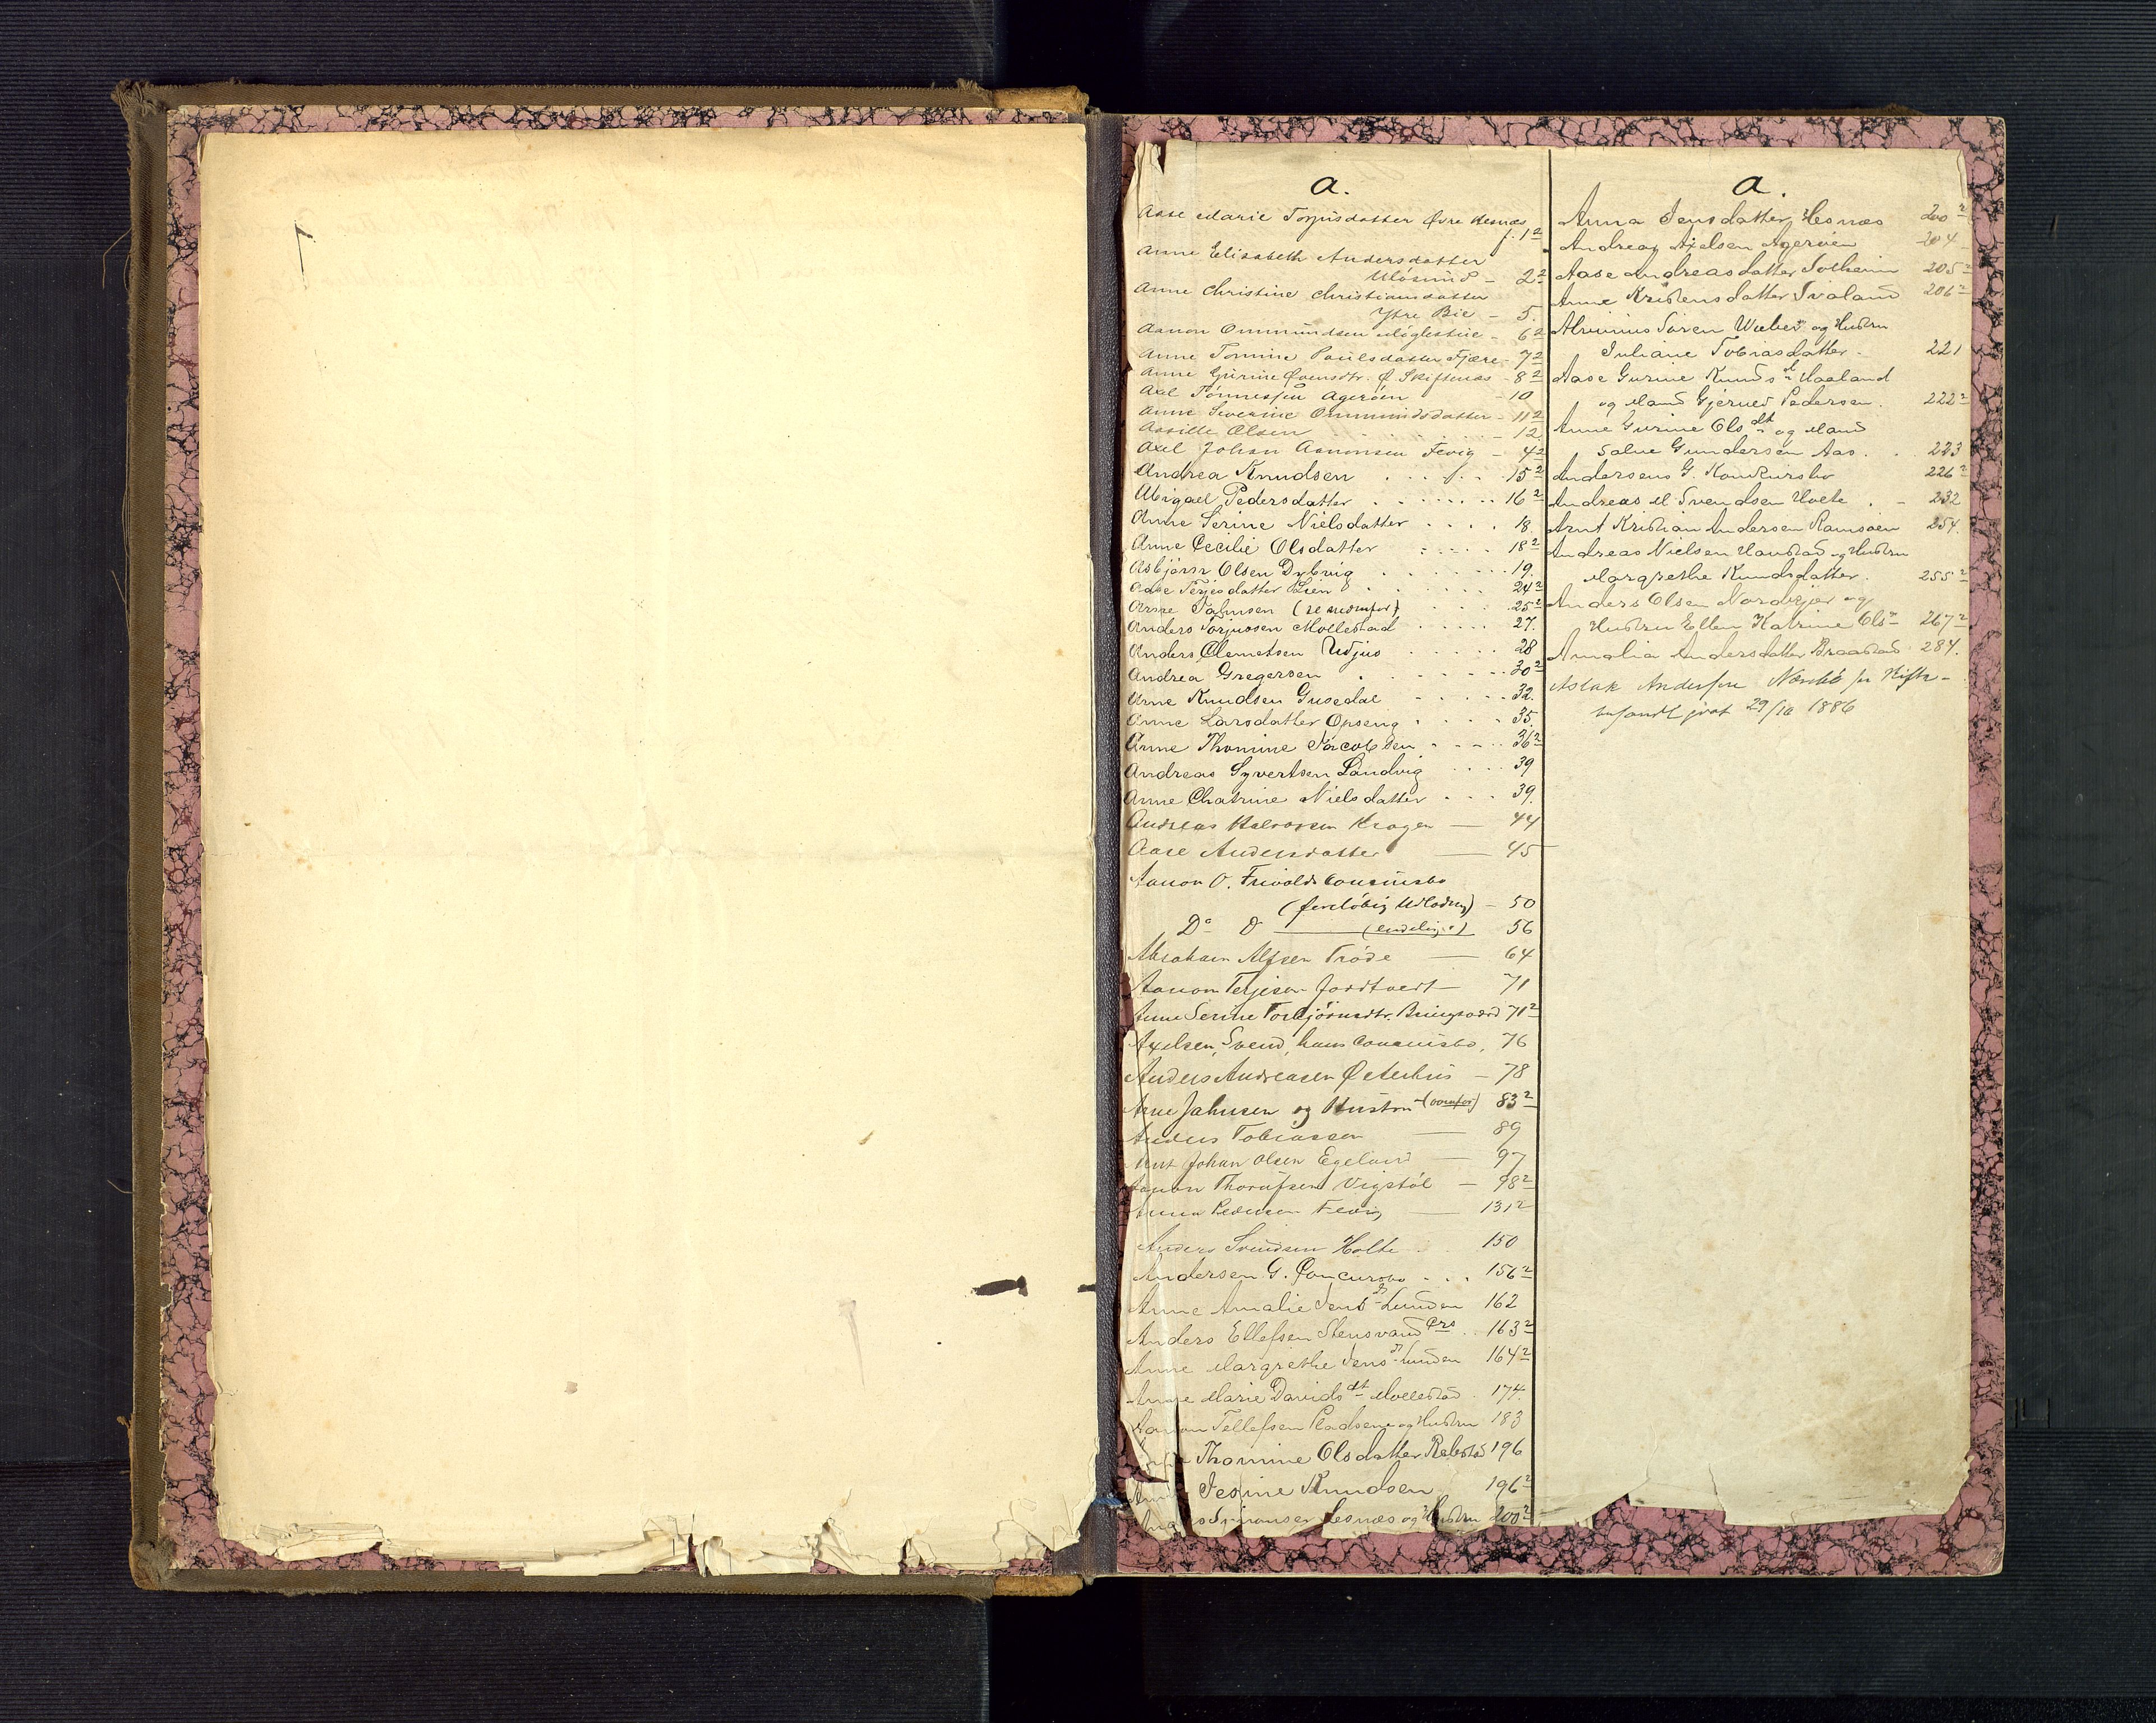 a.
Aase Marie Torjusdatter Øvre Hesnæs
f. 1²
Anne Elisabeth Andersdatter
Uløsund - 2²
Anne Christine Christiansdatter
Ytre Bie - 5.
Aanon Ommundsen Møglestue - 6²
Anne Tomine Paulsdatter Fjære - 7²
Anne Gurine Evensdtr. Ø Skiftenæs - 8²
Axel Tønnessen Agerøen - 10
Anne Severine Ommundsdatter - 11²
Olsen - 12.
Axel Johan Aanonsen Fevig - 4²
Andrea Knudsen 15²
Abigael Pedersdatter 16²
Anne Serine Nielsdatter 18.
Anne Cecilie Olsdatter 18²
Asbjørn Olsen Dybvig 19.
Aase Terjesdatter Lien 24²
Arne Jahnsen (se nedenfor) 25²
Anders Torjussen Mollestad 27.
Anders Clemetsen Udjus 28
Andrea Gregersen 30²
Arne Knudsen Gusedal 32.
Anne Larsdatter Opseng 35.
Anne Thomine Jacobsen 36²
Andreas Syvertsen Landvig 39
Anne Chatrine Nielsdatter 39.
Andreas Halvorsen Kragen — 44
Aase Andersdatter — 45
Aanon O. Frivolds Concursbo
(foreløbig Udlodng) - 50
Do do (endelig) 56
Abraham Alfsen Trøde — 64
Aanon Terjesen Jordtvedt — 71
Anne Serine Torbjørnsdtr. Bringsværd 71²
Axelsen, Svend, hans Concursbo, 76
Anders Andreasen Østerhus - 78
Arne Jahnsen og Hustru (ovenfor) 83²
Anders Tobiassen — 89
Johan Olsen Egeland — 97
Aanon Vigstøl — 98²
Anna Pedersen Fevig — 131²
Anders Svendsen Holte 150
Andersen G. Concursbo 156²
Anne Amalie Jensdt Lunden 162
Anders Ellefsen Stensvand 163²
Anne Margrethe Jensdt Lunden 164²
Anne Marie Davidsdt Mollestad 174.
Aanon Tellefsen og Hustru 183
Thomine Olsdatter 196
Jesine Knudsen 196²
Hesnæs og Hustru 200²
a.
Anna Jensdatter, Hesnæs 200²
Andreas Axelsen Agerøen 204
Aase Andreasdatter Solheim 205²
Anne Kristensdatter Svaland 206²
Søren Weber og Hustru
Juliane Tobiasdatter. 221
Aase Gurine Knudsdt Haaland
og Mand Gjerued Pedersen. 222²
Anne Gurine Olsdt og Mand
Salve Gundersen Aas 223
Andersens G. Konkursbo 226²
Andreas M Svendsen 232
Arnt Kristian Andersen Ramsøen 254.
Andreas Nielsen og Hustru
Margrethe Knudsdatter. 255²
Anders Olsen og
Hustru Ellen Katrine Olsdt 267²
Amalia Andersdatter Braastad 284.
Aslak Andersen
29/10 1886